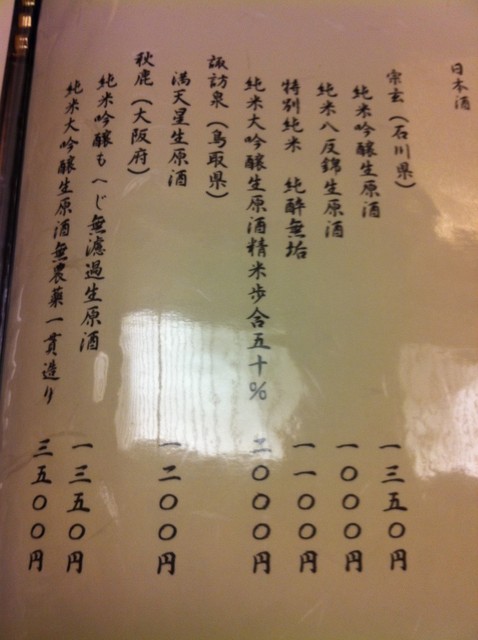 日本酒
宗玄（石川県）
純米吟醸生原酒 一三五〇円
純米八反錦生原酒 一〇〇〇円
特別純米 純酔無垢 一一〇〇円
純米大吟醸生原酒精米歩合五十% 二〇〇〇円
諏訪泉（鳥取県）
満天星生原酒 一二〇〇円
秋鹿（大阪府）
純米吟醸もへじ無濾過生原酒 一三五〇円
純米大吟醸生原酒無農薬一貫造り 三五〇〇円